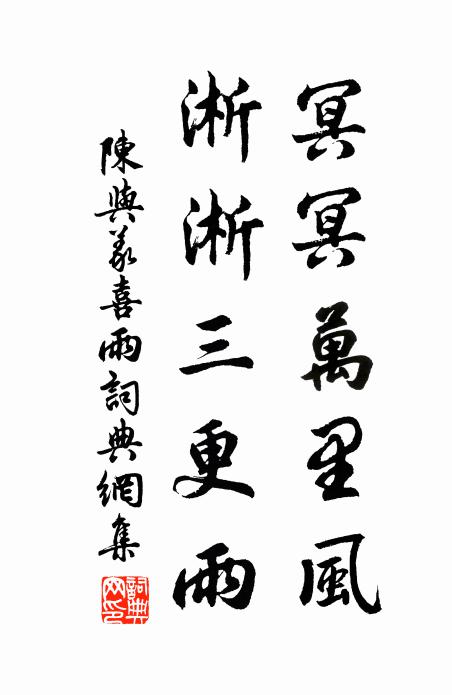 冥冥萬里風
淅淅三更雨
陳與義喜雨詞典網集
詞典網印